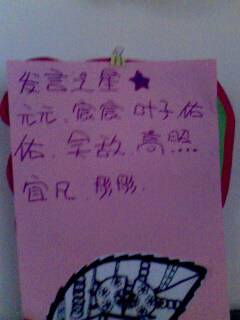 发言之星 ★
元元、宸宸、叶子佑
佑、吴敌、高照
宜凡、彤彤.